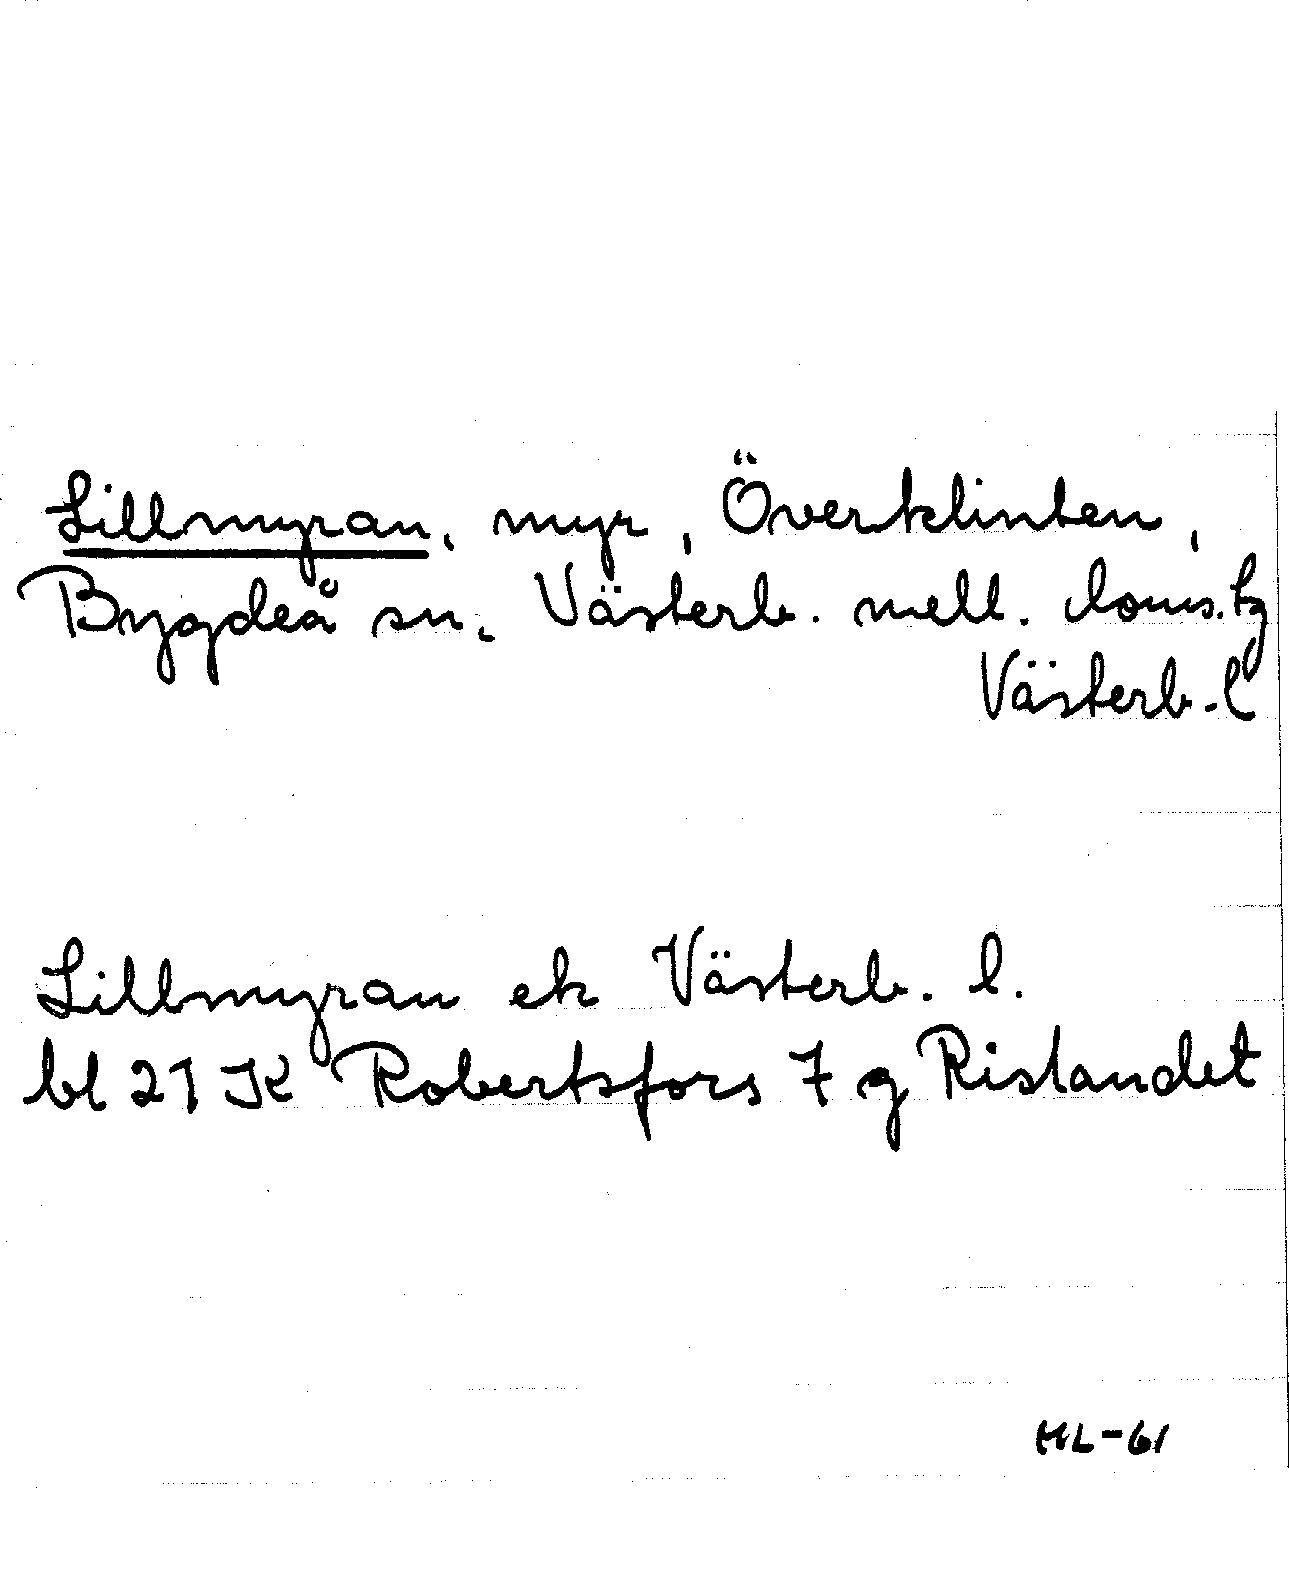 Lillmyran, myr, Överklinten,
Bygdeå sn, Västerb. mell. doms. tg
Västerb. l
Lillmyran ek Västerb. l.
bl 21 K Robertsfors 7 g Rislandet
HL-61